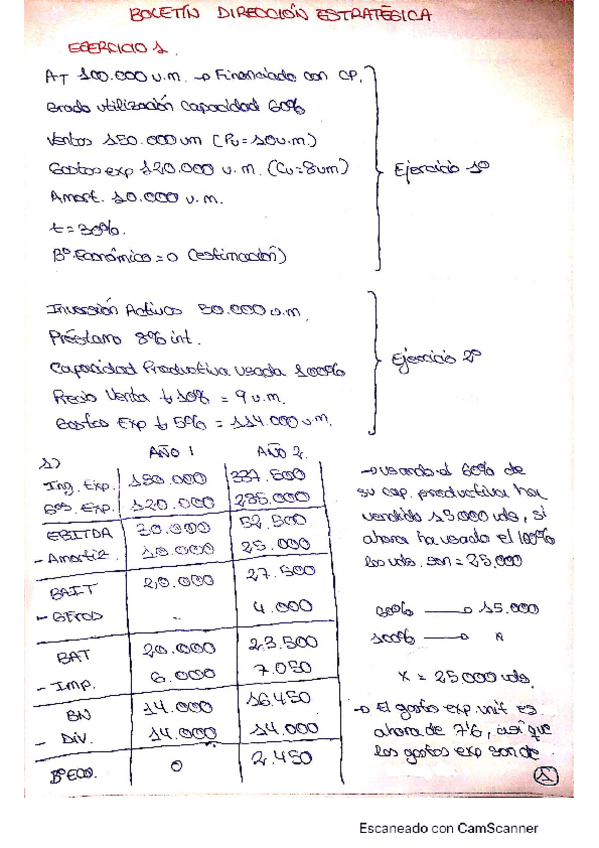 BOLETÍN DIRECCIÓN ESTRATÉGICA
EJERCICIO 1.
AT 100.000 u.m. → Financiado con CP.
Grado utilización Capacidad 60%
Ventas 150.000 um (Pu = 10u.m.)
Gastos exp 120.000 u.m. (Cu = 8um)
Amort. 10.000 u.m.
t = 30%.
Bº Económico = 0 (estimación)
Ejercicio 1º
Inversión Activos 50.000 u.m.
Préstamo 8% int.
Capacidad Productiva usada 100%
Precio Venta ↓ 10% = 9 u.m.
Gastos Exp ↓ 5% = 114.000 u.m.
Ejercicio 2º
1)
AÑO 1 AÑO 2
Ing. Exp. 150.000 337.500
Gos. Exp. 120.000 285.000
EBITDA 30.000 52.500
- Amortiz. 10.000 25.000
BAIT 20.000 27.500
- GFros - 4.000
BAT 20.000 23.500
- Imp. 6.000 7.050
BN 14.000 16.450
- Div. 14.000 14.000
BºECO. 0 2.450
→ usando el 60% de
su cap. productiva ha
vendido 15.000 uds, si
ahora ha usado el 100%
las uds. son = 25.000
60% → 15.000
100% → x
x = 25.000 uds.
→ El gasto exp. unit es
ahora de 7'6, así que
los gastos exp son de
1
Escaneado con CamScanner